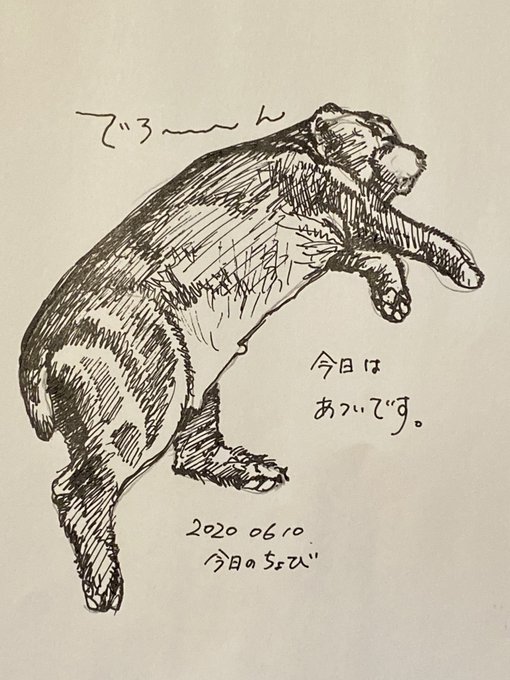 でろ〜〜ん
今日は
あついです。
2020 06 10
今日のちょび